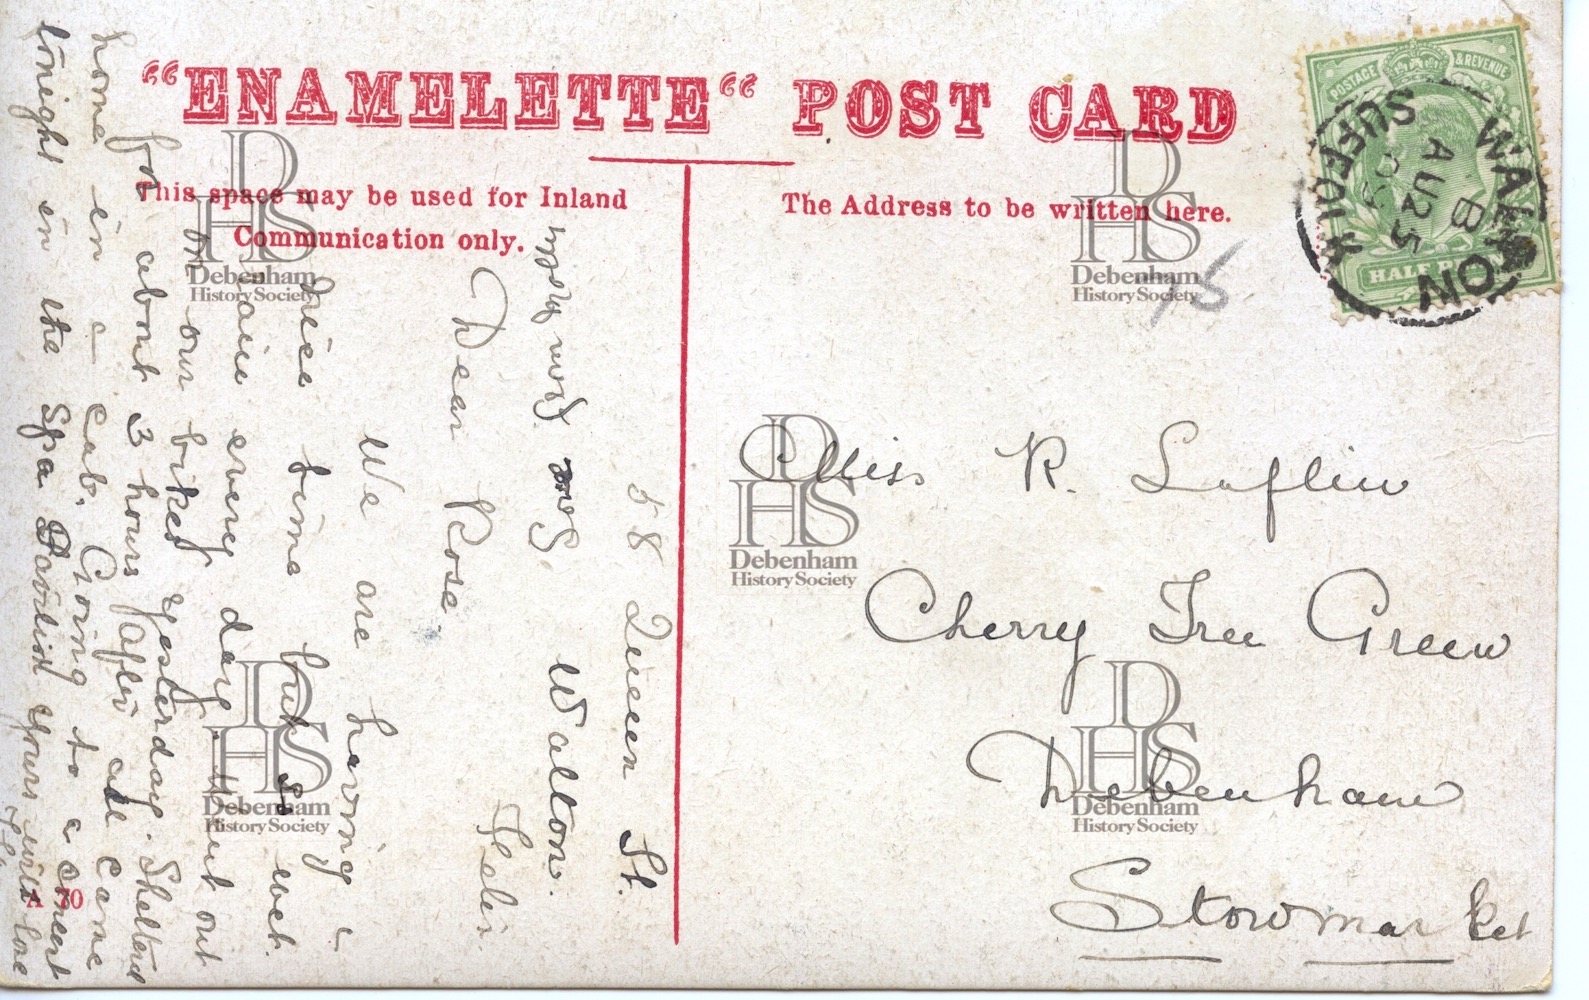 "ENAMELETTE" POST CARD
This space may be used for Inland
Communication only.
The Address to be written here.
POSTAGE & REVENUE
HALF PENNY
WALTON
B
AU 25
SUFFOLK
Miss R. Laflin
Cherry Tree Green
Debenham
Stowmarket
58 Queen St.
Walton.
Felix.
Dear Rose.
We are having a
nice time but so wet.
rain every day. Went out
on our bikes yesterday. Sheltered
for about 3 hours after all came
home in a cab. Going to a concert
tonight in the Spa Pavilion Yours with love
from
A 70
DHS
Debenham
History Society
DHS
Debenham
History Society
DHS
Debenham
History Society
DHS
Debenham
History Society
DHS
Debenham
History Society